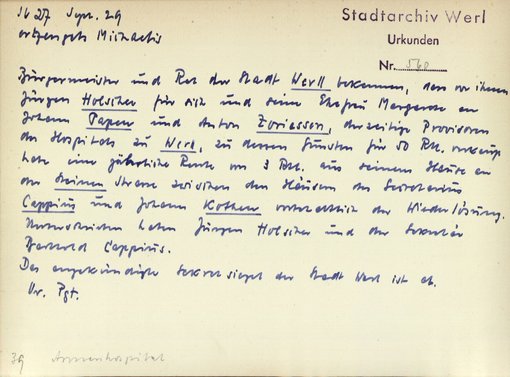 1627 Sept. 29
ertzengels Michaelis
Stadtarchiv Werl
Urkunden
Nr. 560
Bürgermeister und Rat der Stadt Werll bekennen, dass vor ihnen
Jürgen Holscher für sich und seine Ehefrau Margarete an
Johann Papen und Anton Zoriassen, derzeitige Provisoren
des Hospitals zu Werl, zu dessen Gunsten für 50 Rtl. verkauft
habe eine jährliche Rente von 3 Rtl. aus seinem Hause an
der Steinen Strasse zwischen den Häusern des Secretarius
Cappius und Johann Köthers vorbehaltlich der Wiederlösung.
Unterschrieben haben Jürgen Holscher und der Sekretär
Berthold Cappius.
Das angekündigte Sekretsiegel der Stadt Werl ist ab.
Or. Pgt.
39 Armenhospital